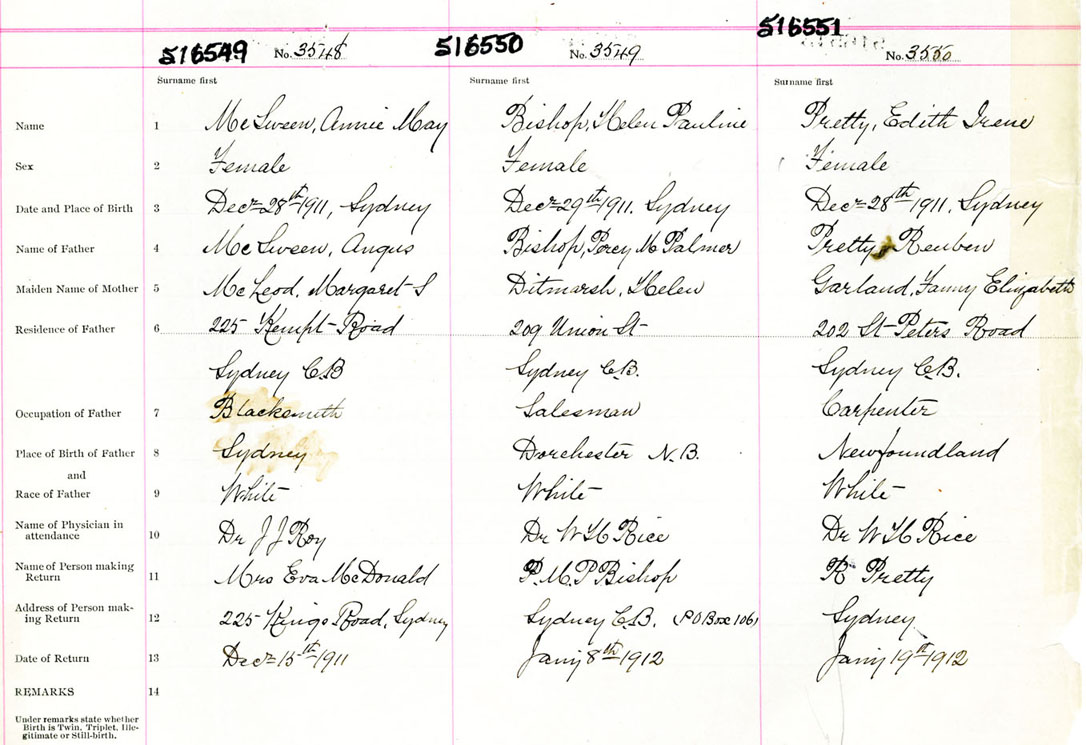 516549 No. 3548 516550 No. 3549 516551 No. 3550
Surname first Surname first Surname first
Name 1 McSween, Annie May Bishop, Helen Pauline Pretty, Edith Irene
Sex 2 Female Female Female
Date and Place of Birth 3 Decr 28th 1911, Sydney Decr 29th 1911. Sydney Decr 28th 1911, Sydney
Name of Father 4 McSween, Angus Bishop, Percy M Palmer Pretty, Reuben
Maiden Name of Mother 5 McLeod, Margaret S Ditmarsh, Helen Garland, Fanny Elizabeth
Residence of Father 6 225 Kempt Road 209 Union St 202 St Peters Road
Sydney C.B Sydney C.B. Sydney C.B.
Occupation of Father 7 Blacksmith Salesman Carpenter
Place of Birth of Father 8 Sydney Dorchester N.B. Newfoundland
and
Race of Father 9 White White White
Name of Physician in
attendance 10 Dr J J Roy Dr W H Rice Dr W H Rice
Name of Person making
Return 11 Mrs Eva McDonald P. M. P Bishop R Pretty
Address of Person mak-
ing Return 12 225 Kings Road, Sydney Sydney C.B. (P O Box 106) Sydney
Date of Return 13 Decr 15th 1911 Jany 8th 1912 Jany 19th 1912
REMARKS 14
Under remarks state whether
Birth is Twin, Triplet, Ille-
gitimate or Still-birth.